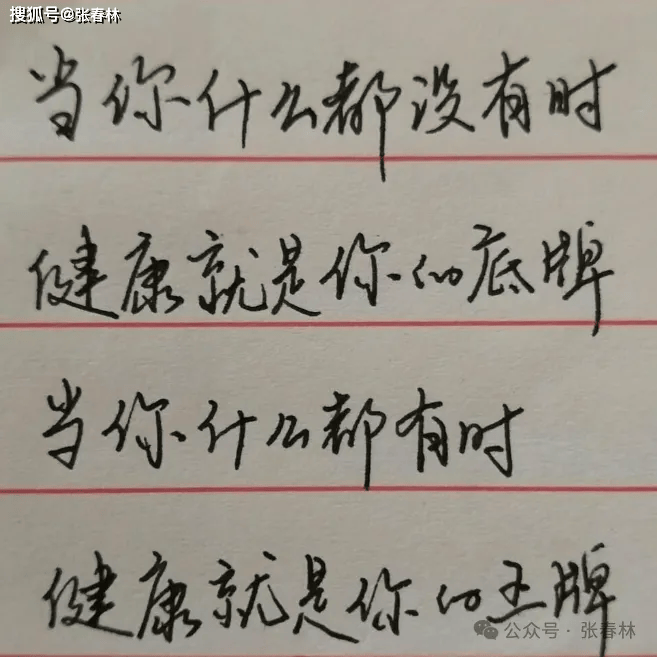 搜狐号@张春林
当你什么都没有时
健康就是你的底牌
当你什么都有时
健康就是你的王牌
公众号·张春林